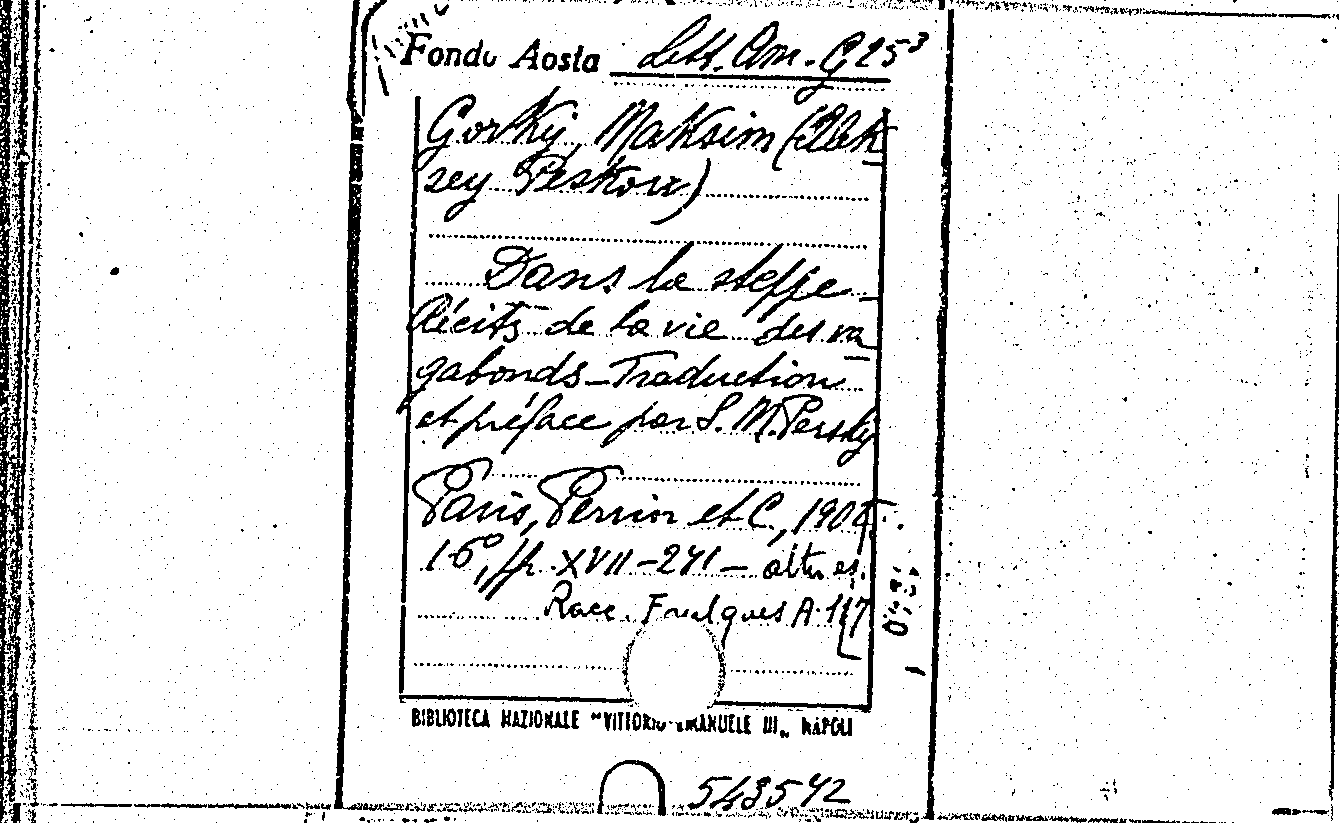 Fondo Aosta Lett. Am. G 25³
Gorkij, Maksim (Alek-
sey Peskow)
Dans la steppe -
Récits de la vie des va-
gabonds - Traduction
et préface par S. M. Persky
Paris, Perrin et C., 190
16°, pp. XVII-241 - altro es.
Racc. Foulques A. 117
BIBLIOTECA NAZIONALE "VITTORIO EMANUELE III" NAPOLI
543542